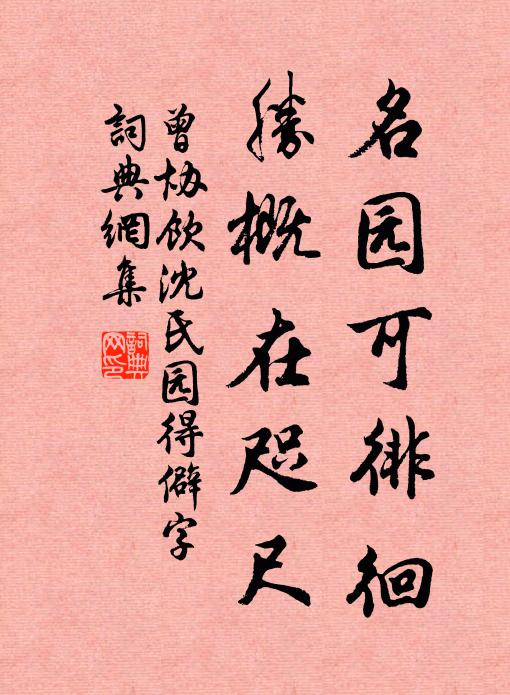 名园可徘徊
勝概在咫尺
曾协飲沈氏园得僻字
詞典網集
詞典网印